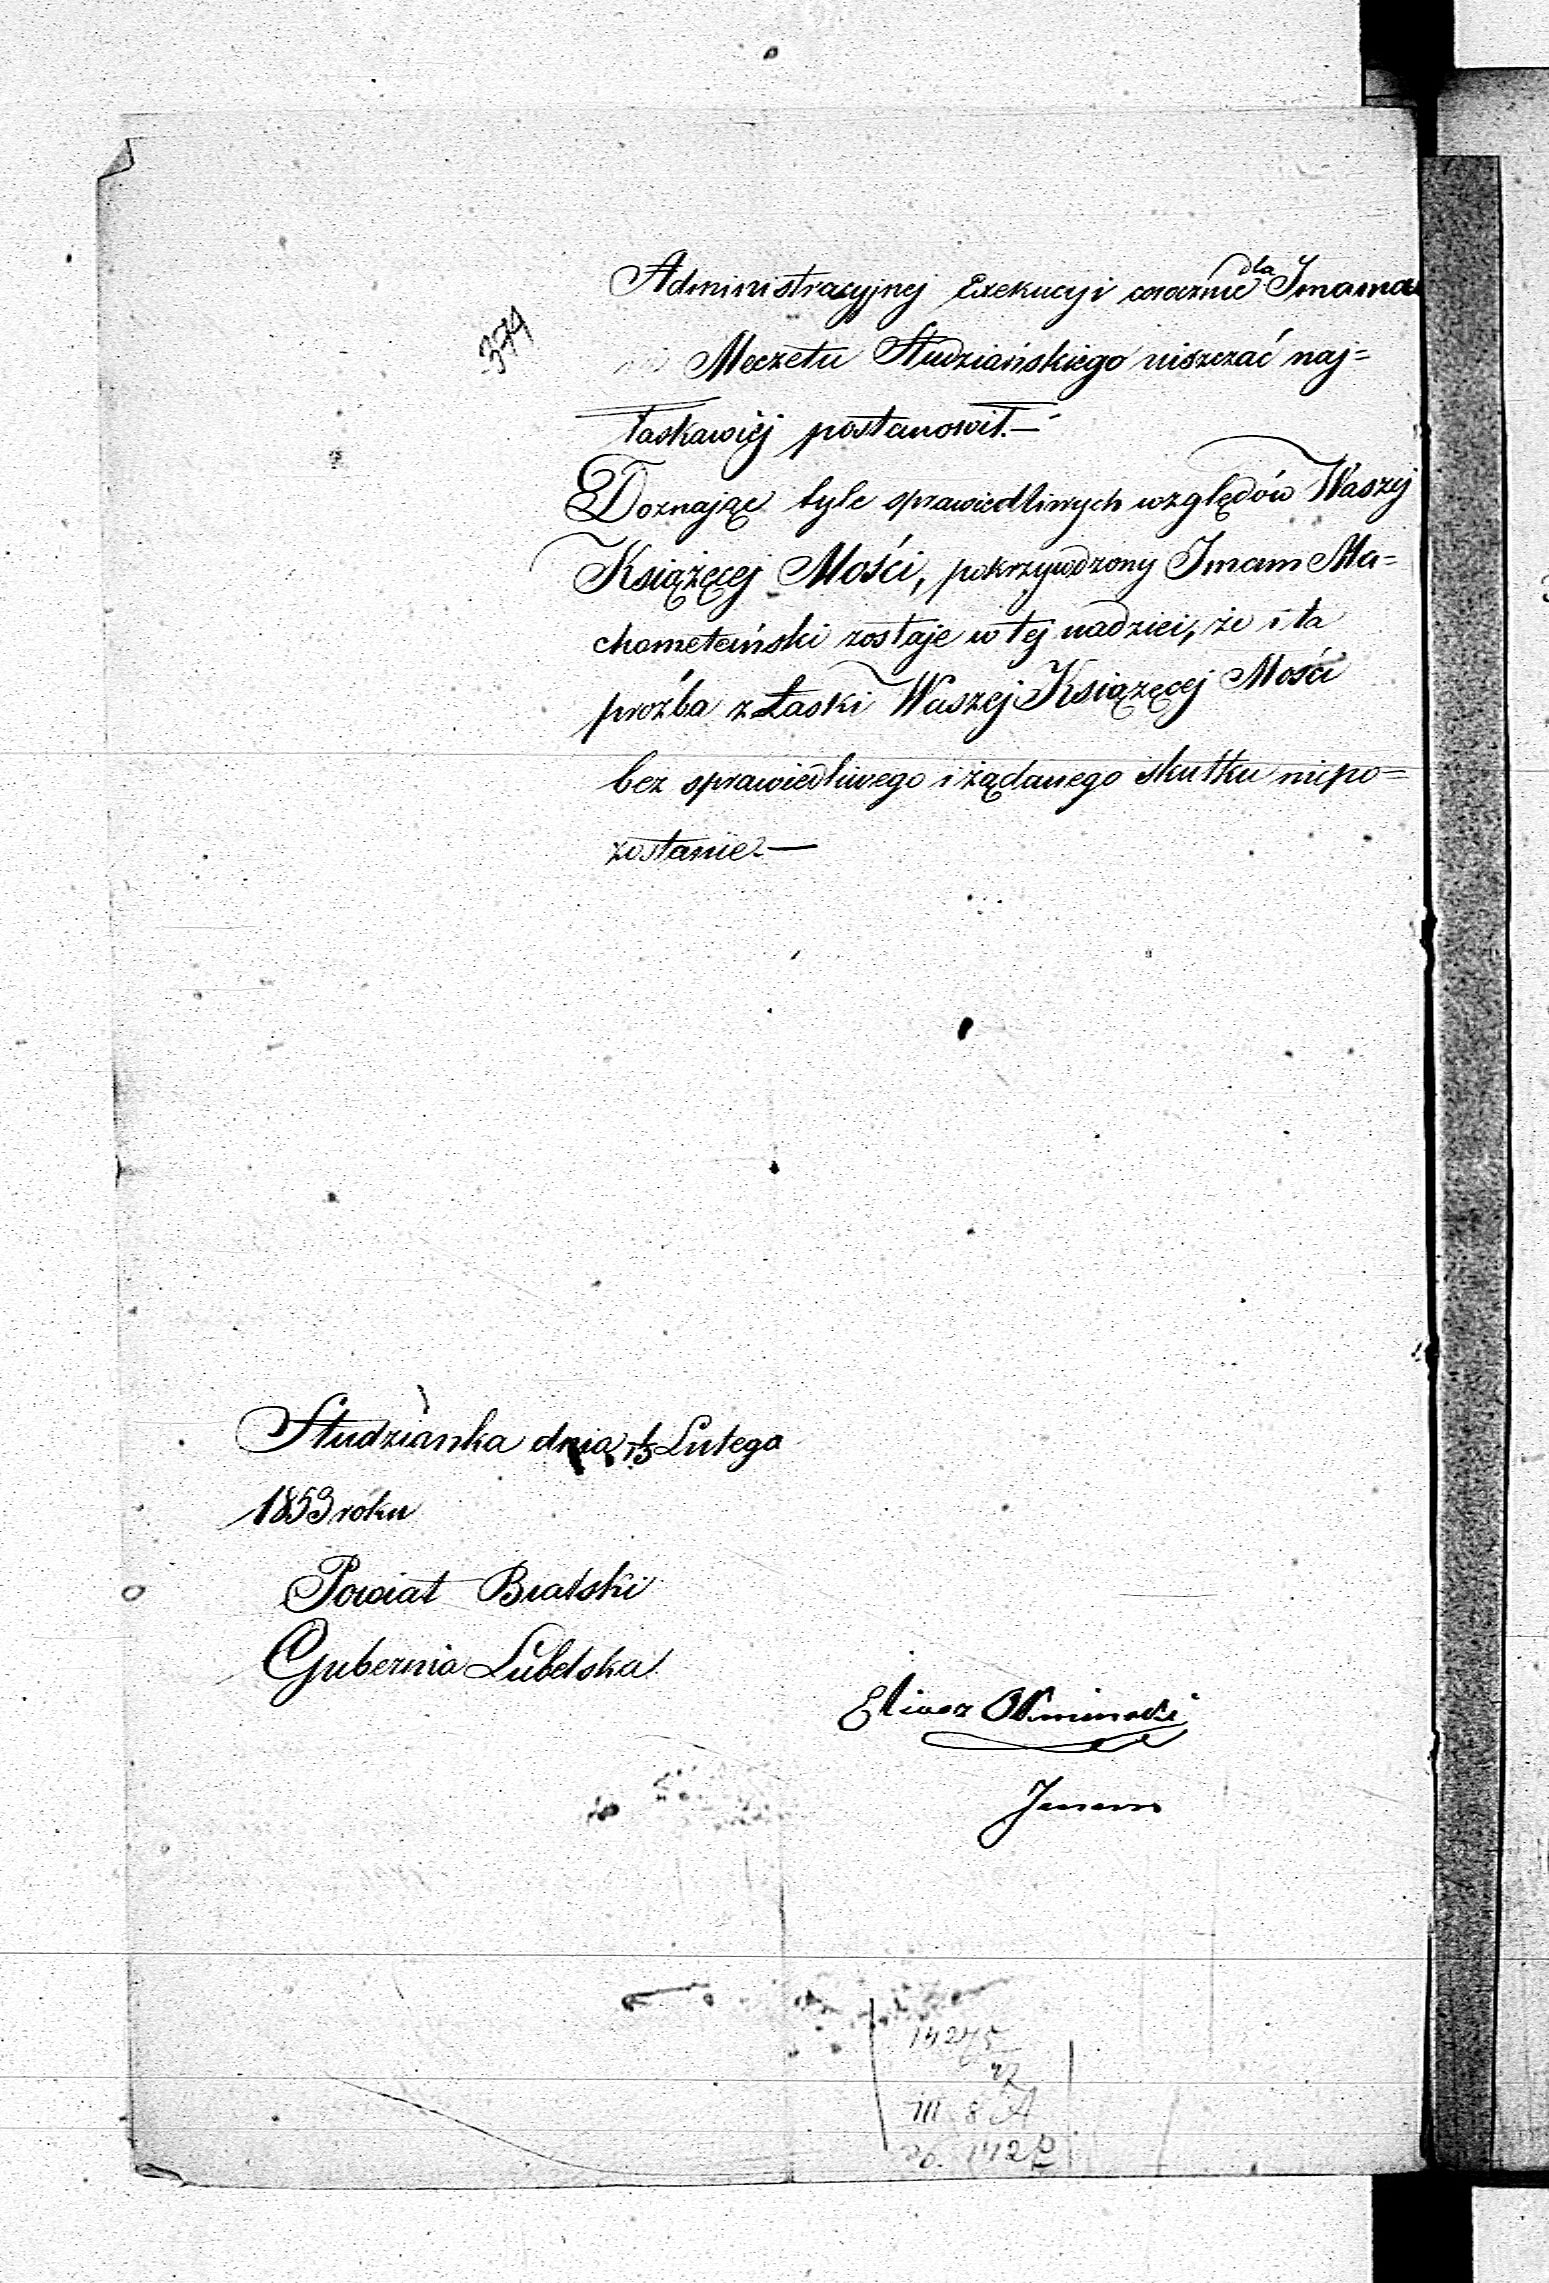 374
Administracyjnej Exekucyi corocznie dla Imama
Meczetu Studziańskiego uiszczać naj=
łaskawiéj postanowił.—
Doznając tyle sprawiedliwych względów Waszej
Książęcej Mości, pokrzywdzony Imam Ma=
chometański zostaje w tej nadziei, że i ta
proźba z Łaski Waszej Książęcej Mości
bez sprawiedliwego i żądanego skutku niepo=
zostanie.—
Studzianka dnia 1/13 Lutego
1853 roku
Powiat Bialski
Gubernia Lubelska
Eliasz Okminski
Imam
14275
III 8 A
142